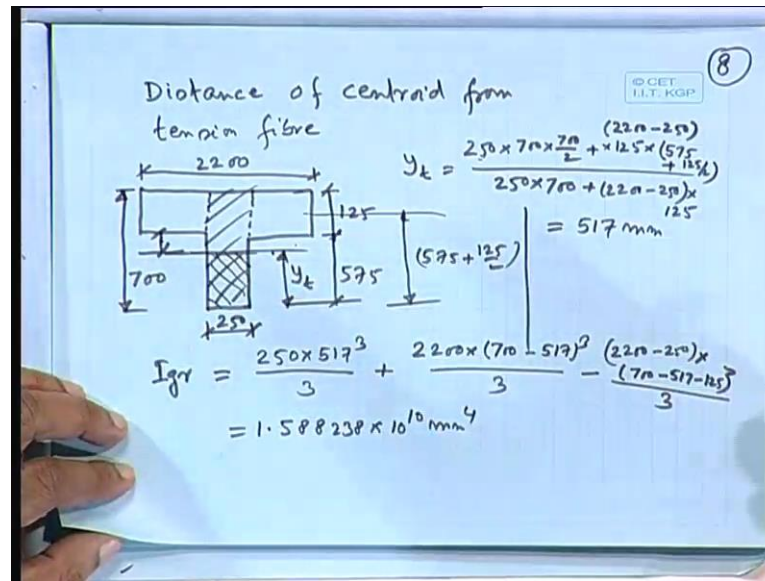 8
© CET
I.I.T. KGP
Distance of centroid from
tension fibre
2200
125
700
yt
575
(575 + 125/2)
250
yt = (250 × 700 × 700/2 + (2200 - 250) × 125 × (575 + 125/2)) / (250 × 700 + (2200 - 250) × 125)
= 517 mm
Igr = 250 × 517³ / 3 + 2200 × (700 - 517)³ / 3 - (2200 - 250) × (700 - 517 - 125)³ / 3
= 1.588238 × 10¹⁰ mm⁴